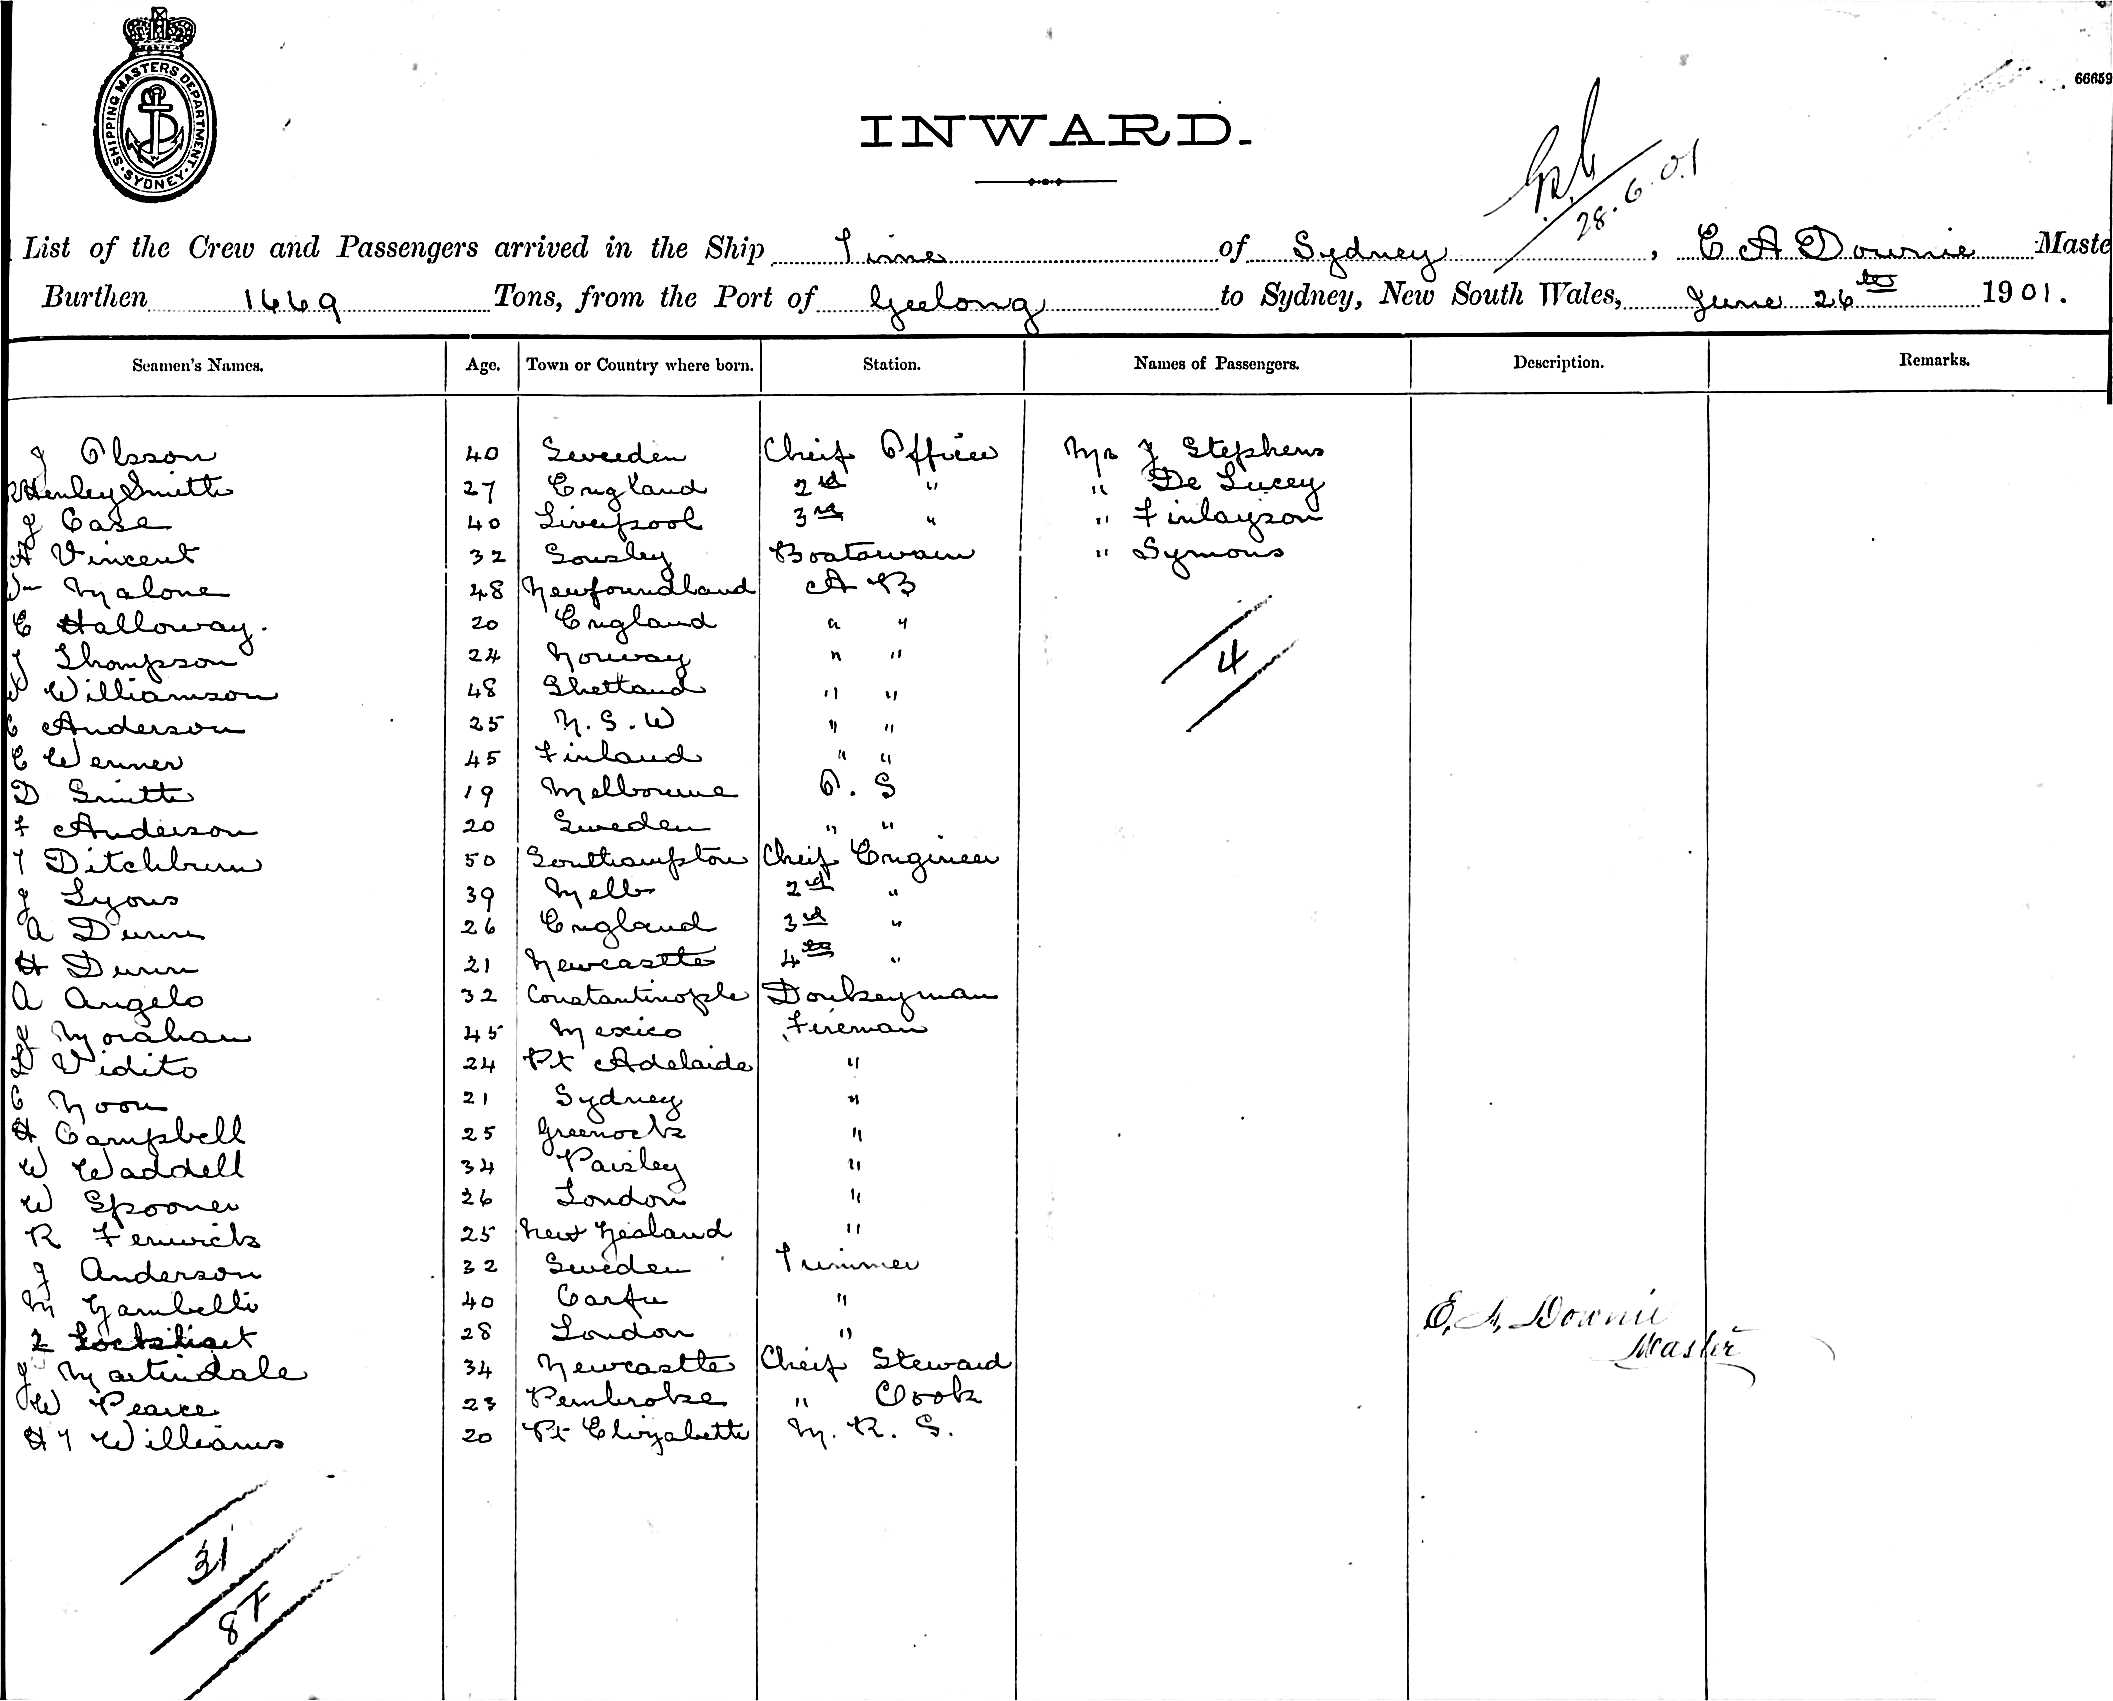 SHIPPING MASTERS DEPARTMENT
SYDNEY
66659
INWARD.
28.6.01
List of the Crew and Passengers arrived in the Ship Time of Sydney, E A Downie Maste
Burthen 1669 Tons, from the Port of Geelong to Sydney, New South Wales, June 26th 1901.
Seamen's Names. Age. Town or Country where born. Station. Names of Passengers. Description. Remarks.
J Olsson 40 Sweeden Cheif Officer Mr J Stephens
Henley Smith 27 England 2nd " " De Lucey
J Case 40 Liverpool 3rd " " Finlayson
A Vincent 32 Boatswain " Symons
Wm Malone 48 Newfoundland A B
C Halloway. 20 England " "
J Thompson 24 Norway " " 4
W Williamson 48 Shetland " "
C Anderson 25 N.S.W " "
C Wenner 45 Finland " "
D Smith 19 Melbourne O. S
F Anderson 20 Sweden " "
T Ditchburn 50 Southampton Cheif Engineer
J Lyons 39 Melb 2nd "
A Dunn 26 England 3rd "
H Dunn 21 Newcastle 4th "
A Angelo 32 Constantinople Donkeyman
J Morahan 45 Mexico Fireman
H Vidito 24 Pt Adelaide "
C Noon 21 Sydney "
H Campbell 25 Greenock "
W Waddell 34 Paisley "
W Spooner 26 London "
R Fenwick 25 New Zealand "
J Anderson 32 Sweden Trimmer
M Gambelli 40 Corfu "
28 London "
E. A. Downie
Master
J Martindale 34 Newcastle Cheif Steward
W Pearce 23 Pembroke " Cook
H T Williams 20 Pt Elizabeth M. R. S.
31
8F